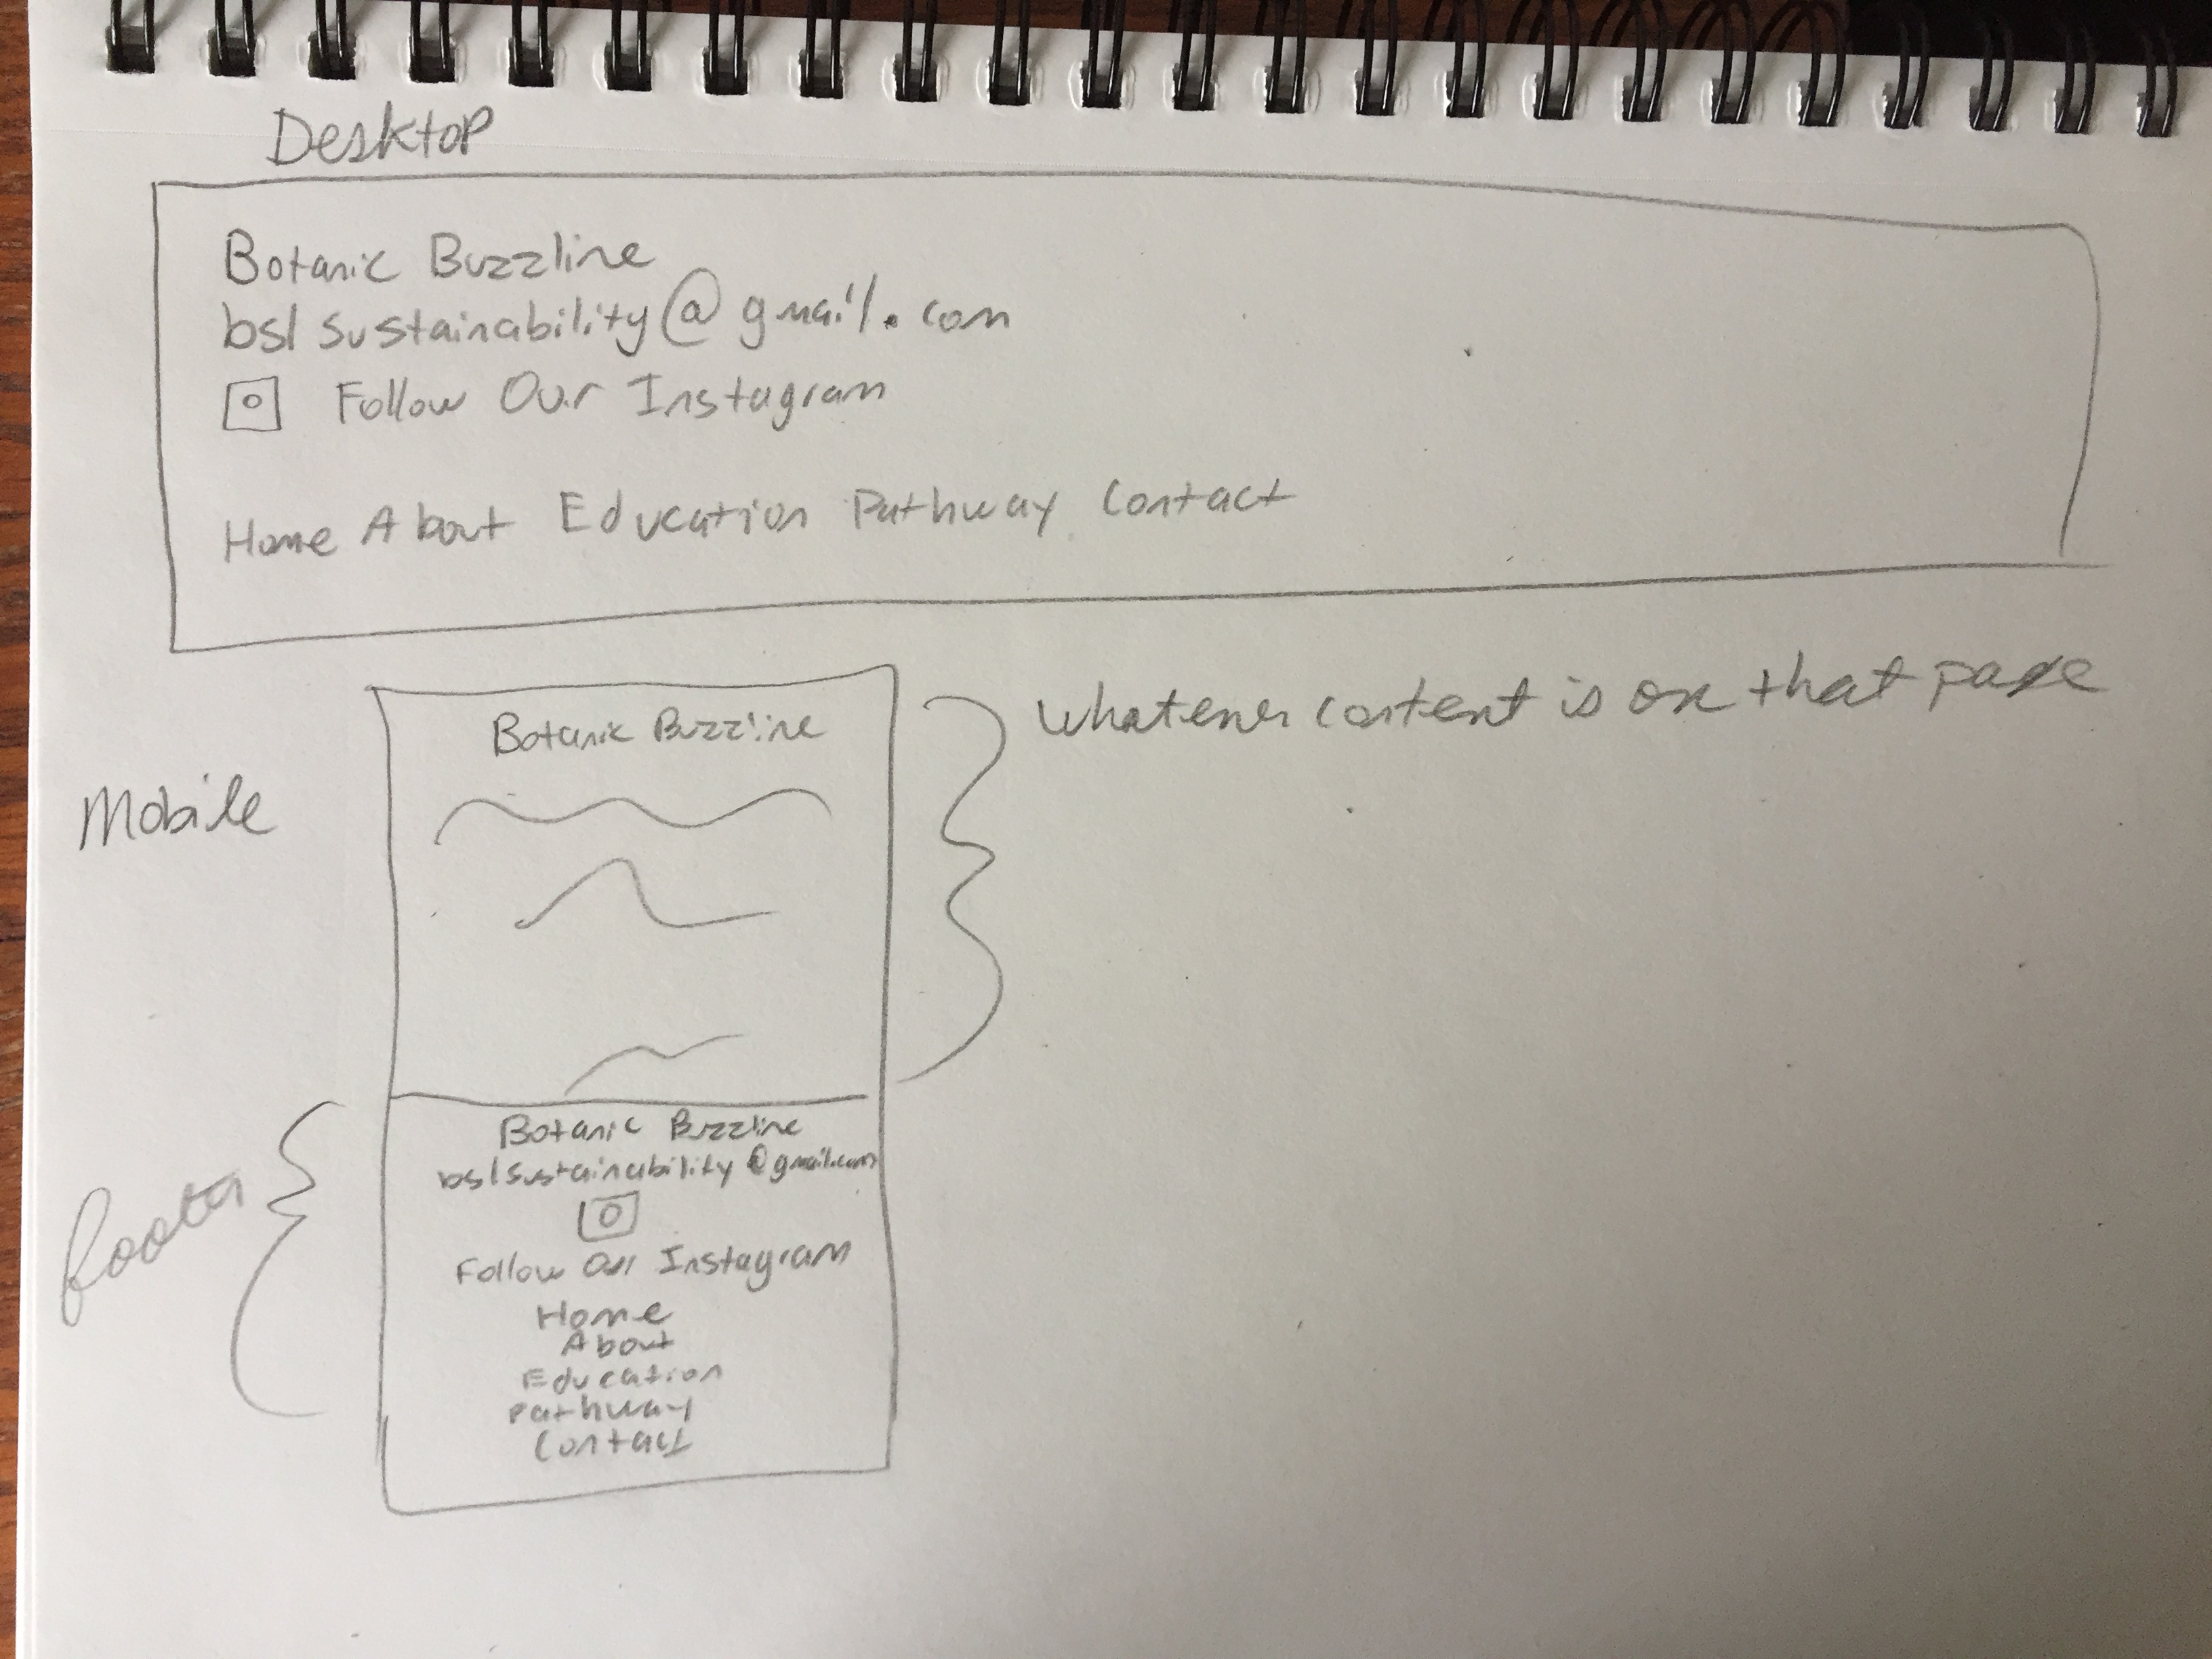 Desktop
Botanic Buzzline
bslsustainability@gmail.com
Follow Our Instagram
Home About Education Pathway Contact
Mobile
Botanic Buzzline
whatever content is on that page
footer
Botanic Buzzline
bslsustainability@gmail.com
Follow Our Instagram
Home
About
Education
Pathway
Contact